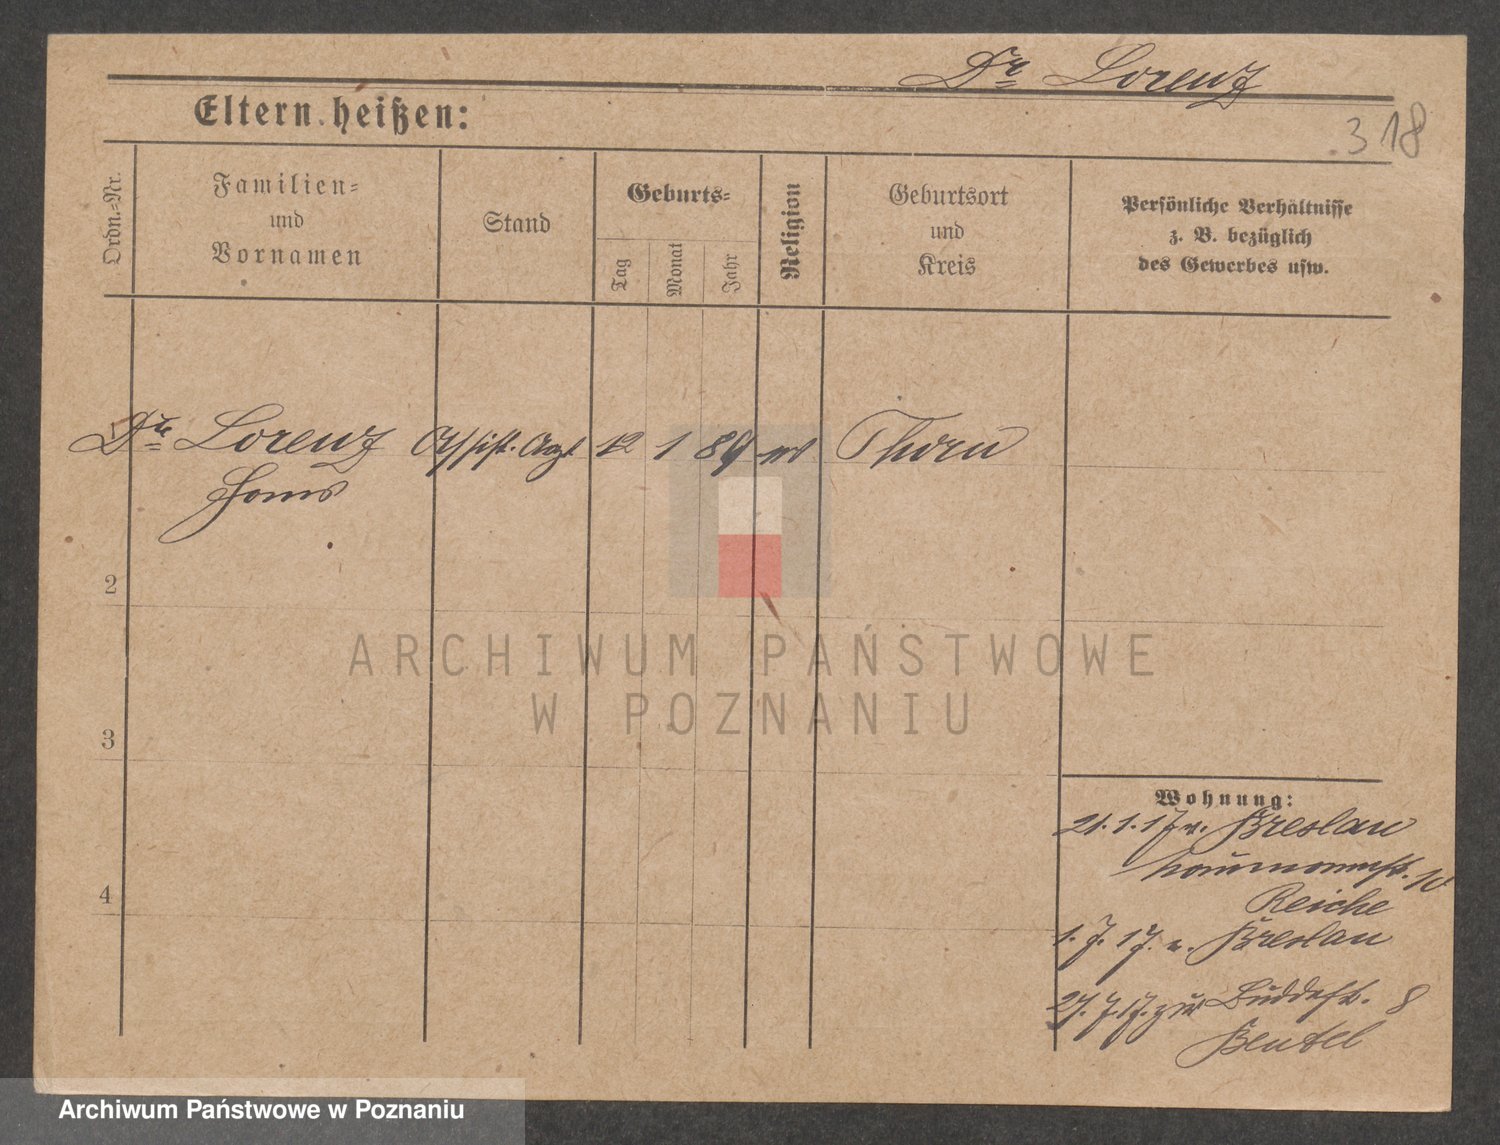 Dr Lorenz
Eltern heißen:
318
Ordn.-Nr.
Familien-
und
Vornamen
Stand
Geburts-
Tag
Monat
Jahr
Religion
Geburtsort
und
Kreis
Persönliche Verhältnisse
z. B. bezüglich
des Gewerbes usw.
Dr Lorenz Assist. Arzt 12 1 89 ev Thorn
Hans
2
3
4
ARCHIWUM PAŃSTWOWE
W POZNANIU
Wohnung:
21.1.17 v. Breslau
10
Reiche
1.7.17. n. Breslau
27.7.17. zur Buddestr. 8
Beutel
Archiwum Państwowe w Poznaniu